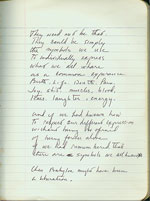 They need not be that.
They could be simply
the symbols we use
to individually express
what we all share
as a common experience
Birth. Life. Death. Pain
Joy. Skin. muscle. blood.
tears. laughter. energy.
And if we had known how
to respect our different expression
without being
of being
if we had remembered that
these are symbols we all
then Babylon might have been
a liberation.